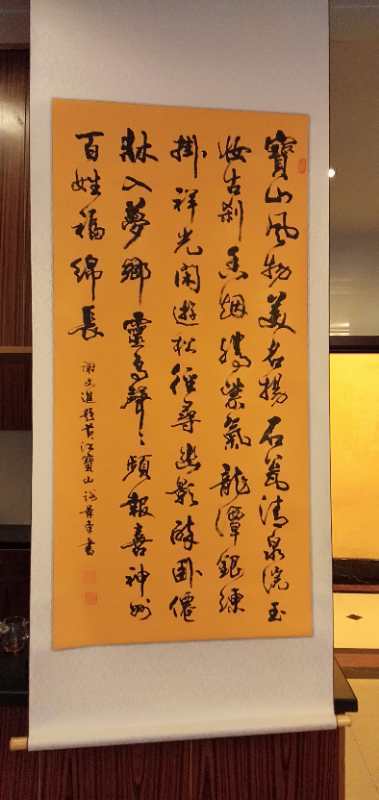 寶山風物美名揚石瓮清泉浣玉
妝古剎香烟騰紫氣龍潭銀練
掛祥光閑遊松徑尋幽影醉卧僊
牀入夢鄉靈鳥聲聲頻報喜神州
百姓福綿長
謝文進題黃江寶山詩 書